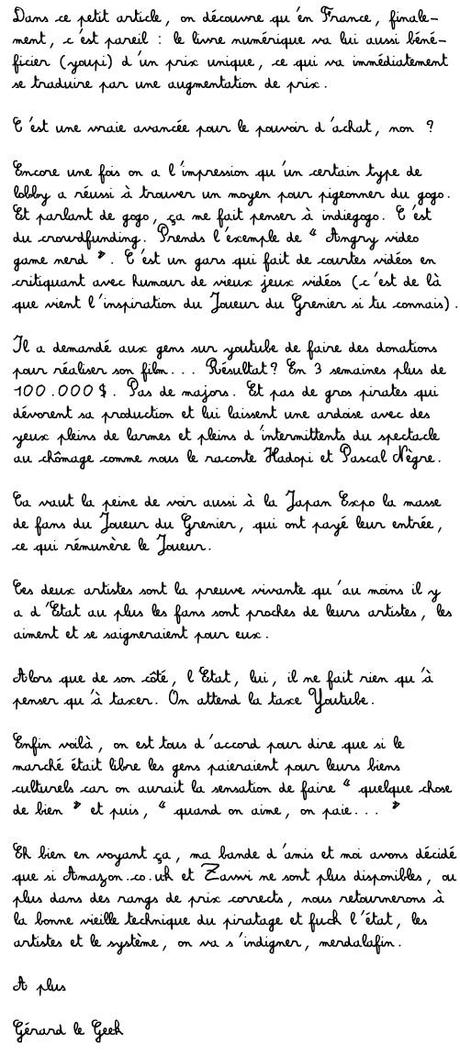 Dans ce petit article, on découvre qu'en France, finale-
ment, c'est pareil : le livre numérique va lui aussi béné-
ficier (youpi) d'un prix unique, ce qui va immédiatement
se traduire par une augmentation de prix.
C'est une vraie avancée pour le pouvoir d'achat, non ?
Encore une fois on a l'impression qu'un certain type de
lobby a réussi à trouver un moyen pour pigeonner du gogo.
Et parlant de gogo, ça me fait penser à indiegogo. C'est
du crowdfunding. Prends l'exemple de “ Angry video
game nerd ”. C'est un gars qui fait de courtes vidéos en
critiquant avec humour de vieux jeux vidéos (c'est de là
que vient l'inspiration du Joueur du Grenier si tu connais).
Il a demandé aux gens sur youtube de faire des donations
pour réaliser son film... Résultat? En 3 semaines plus de
100.000$. Pas de majors. Et pas de gros pirates qui
dévorent sa production et lui laissent une ardoise avec des
yeux pleins de larmes et pleins d'intermittents du spectacle
au chômage comme nous le raconte Hadopi et Pascal Nègre.
Ca vaut la peine de voir aussi à la Japan Expo la masse
de fans du Joueur du Grenier, qui ont payé leur entrée,
ce qui rémunère le Joueur.
Ces deux artistes sont la preuve vivante qu'au moins il y
a d'Etat au plus les fans sont proches de leurs artistes, les
aiment et se saigneraient pour eux.
Alors que de son côté, l'Etat, lui, il ne fait rien qu'à
penser qu'à taxer. On attend la taxe Youtube.
Enfin voilà, on est tous d'accord pour dire que si le
marché était libre les gens paieraient pour leurs biens
culturels car on aurait la sensation de faire “ quelque chose
de bien ” et puis, “ quand on aime, on paie... ”
Eh bien en voyant ça, ma bande d'amis et moi avons décidé
que si Amazon.co.uk et Zavvi ne sont plus disponibles, ou
plus dans des rangs de prix corrects, nous retournerons à
la bonne vieille technique du piratage et fuck l'état, les
artistes et le système, on va s'indigner, merdalafin.
A plus
Gérard le Geek